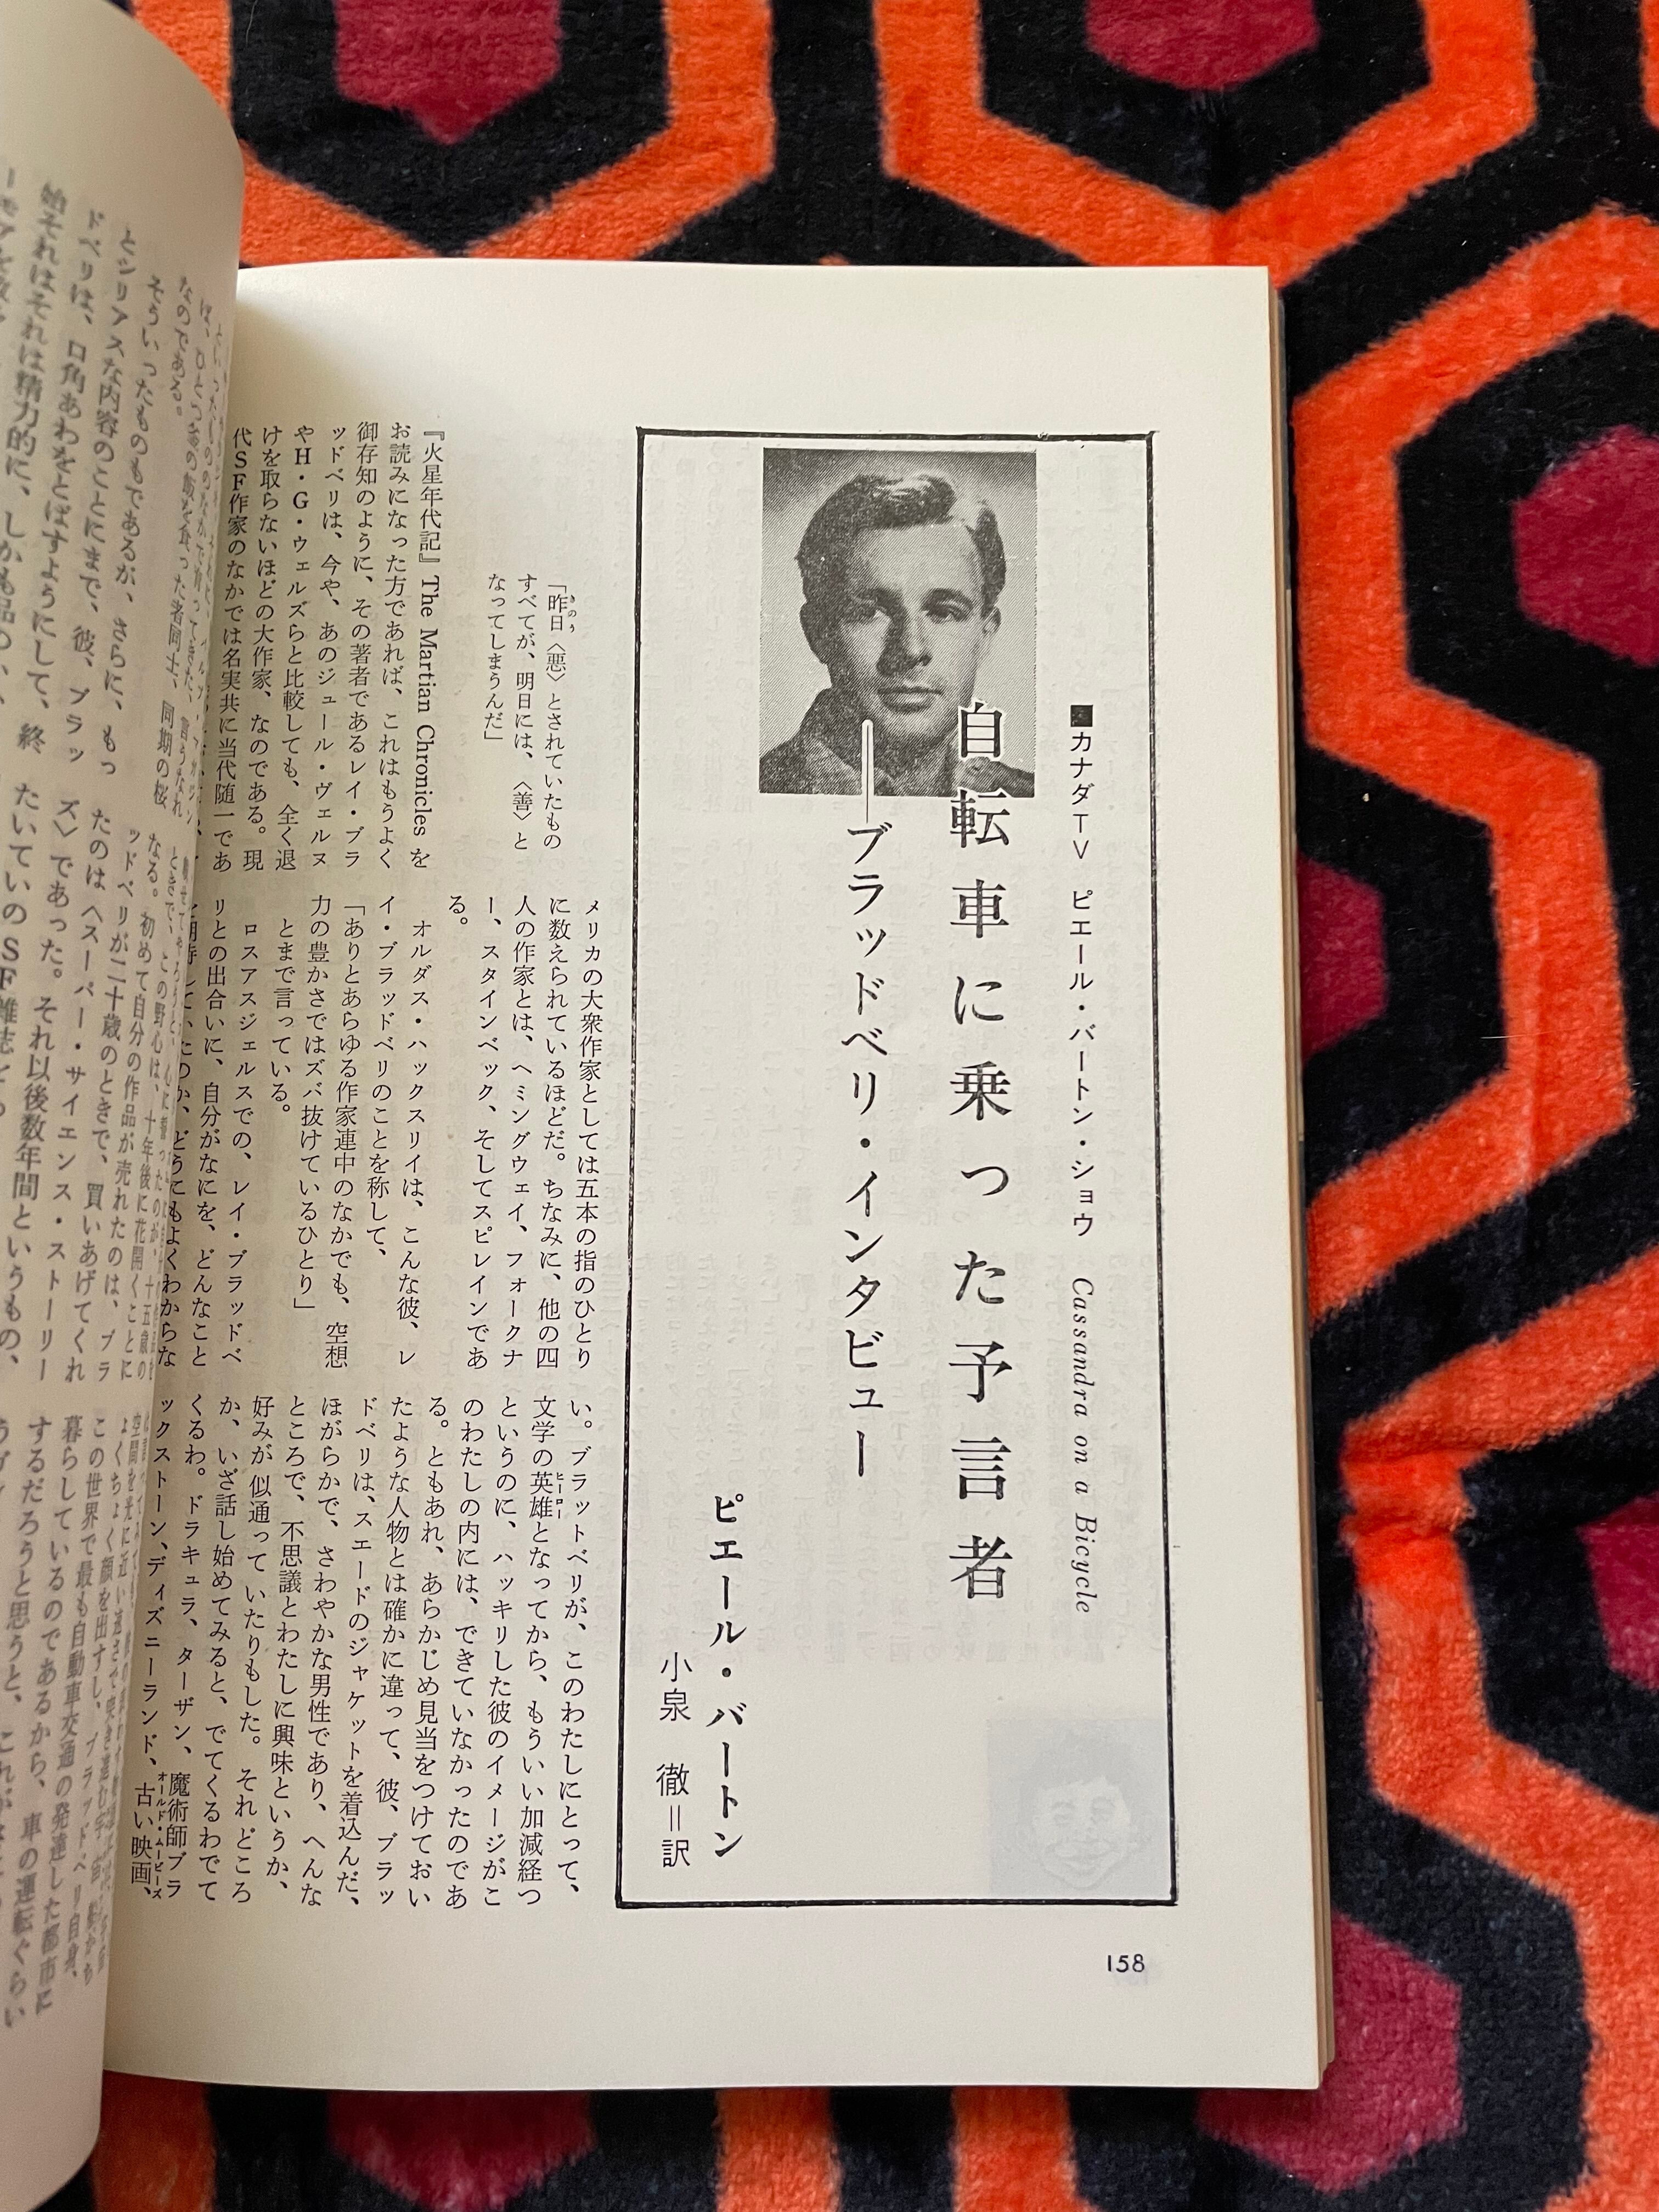 ■カナダTV ピエール・バートン・ショウ Cassandra on a Bicycle
自転車に乗った予言者
──ブラッドベリ・インタビュー
ピエール・バートン
小泉 徹＝訳
「昨日〈悪〉とされていたもの
きのう
すべてが、明日には、〈善〉と
なってしまうんだ」
『火星年代記』The Martian Chronicles を
お読みになった方であれば、これはもうよく
御存知のように、その著者であるレイ・ブラ
ッドベリは、今や、あのジュール・ヴェルヌ
やH・G・ウェルズらと比較しても、全く退
けを取らないほどの大作家、なのである。現
代SF作家のなかでは名実共に当代随一であ
メリカの大衆作家としては五本の指のひとり
に数えられているほどだ。ちなみに、他の四
人の作家とは、ヘミングウェイ、フォークナ
ー、スタインベック、そしてスピレインであ
る。
オルダス・ハックスリイは、こんな彼、レ
イ・ブラッドベリのことを称して、
「ありとあらゆる作家連中のなかでも、空想
力の豊かさではズバ抜けているひとり」
とまで言っている。
ロスアンジェルスでの、レイ・ブラッドベ
リとの出合いに、自分がなにを、どんなこと
していたのか、どうにもよくわからな
い。ブラットベリが、このわたしにとって、
文学の英雄となってから、もういい加減経つ
ヒーロー
というのに、ハッキリした彼のイメージがこ
のわたしの内には、できていなかったのであ
る。ともあれ、あらかじめ見当をつけておい
たような人物とは確かに違って、彼、ブラッ
ドベリは、スエードのジャケットを着込んだ、
ほがらかで、さわやかな男性であり、へんな
ところで、不思議とわたしに興味というか、
好みが似通っていたりもした。それどころ
か、いざ話し始めてみると、でてくるわでて
くるわ。ドラキュラ、ターザン、魔術師ブラ
ックストーン、ディズニーランド、古い映画、
オールド・ムービーズ
158
なのである。
そういったものもであるが、さらに、もっ
とシリアスな内容のことにまで、彼、ブラッ
ドベリは、口角あわをとばすようにして、終
始それはそれは精力的に、しかも品の
なる。初めて自分の作品が売れたのは、ブラ
ッドベリが二十歳のときで、買いあげてくれ
たのは〈スーパー・サイエンス・ストーリー
ズ〉であった。それ以後数年間というもの、
たいていのSF雑誌
この世界で最も自動車交通の発達した都市に
暮らしているのであるから、車の運転ぐらい
するだろうと思うと、これが